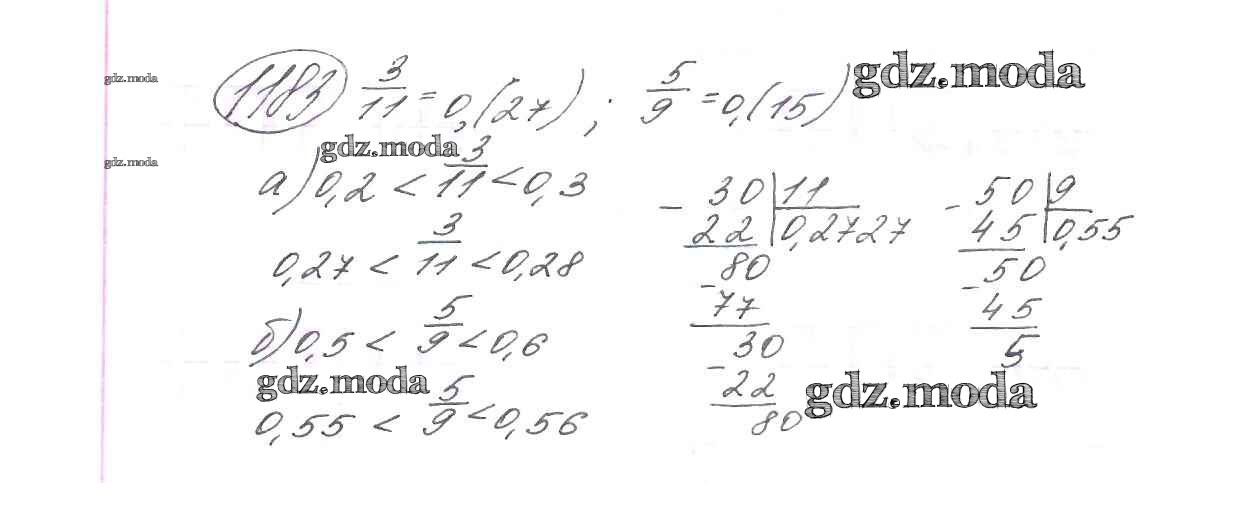 1183 3/11 = 0,(27) ; 5/9 = 0,(15) gdz.moda
gdz.moda
gdz.moda
gdz.moda
а) 0,2 < 3/11 < 0,3
0,27 < 3/11 < 0,28
б) 0,5 < 5/9 < 0,6
gdz.moda
0,55 < 5/9 < 0,56
- 30 | 11
22 | 0,2727
80
- 77
30
- 22
80
- 50 | 9
45 | 0,55
50
- 45
5
gdz.moda